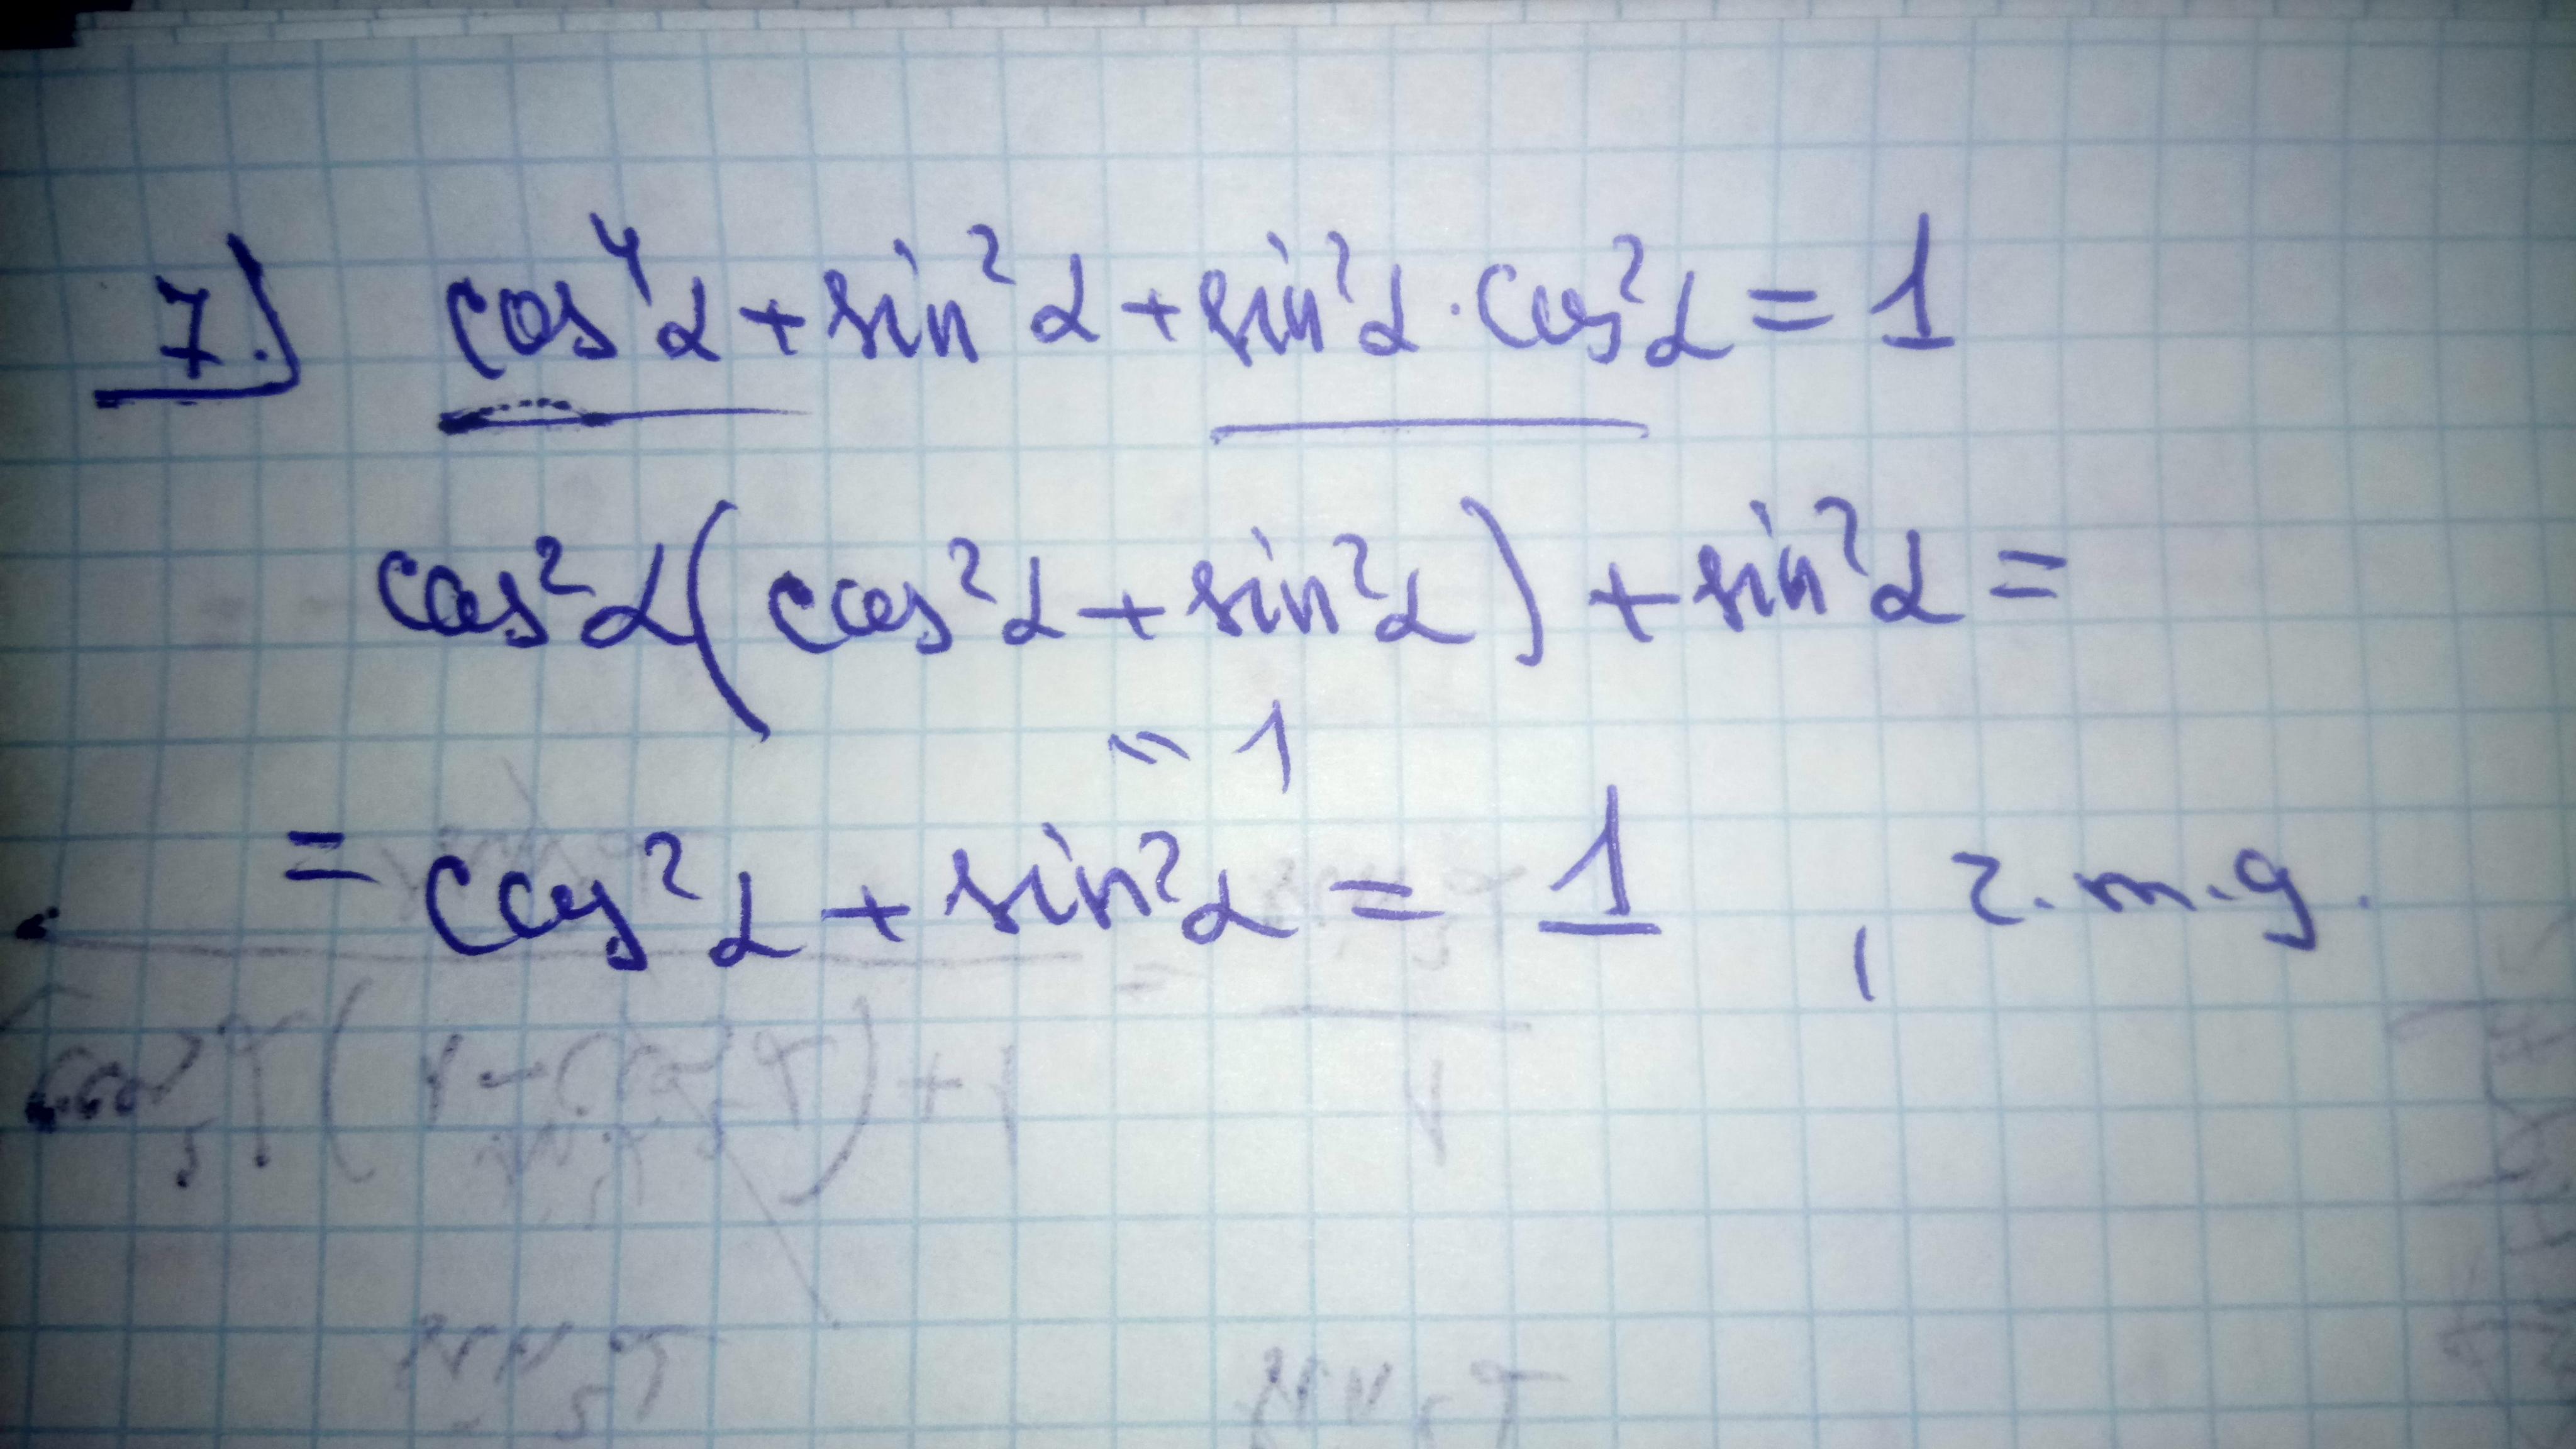 7.) cos⁴α + sin²α + sin²α · cos²α = 1
cos²α(cos²α + sin²α) + sin²α =
" 1
= cos²α + sin²α = 1 , ч.т.д.